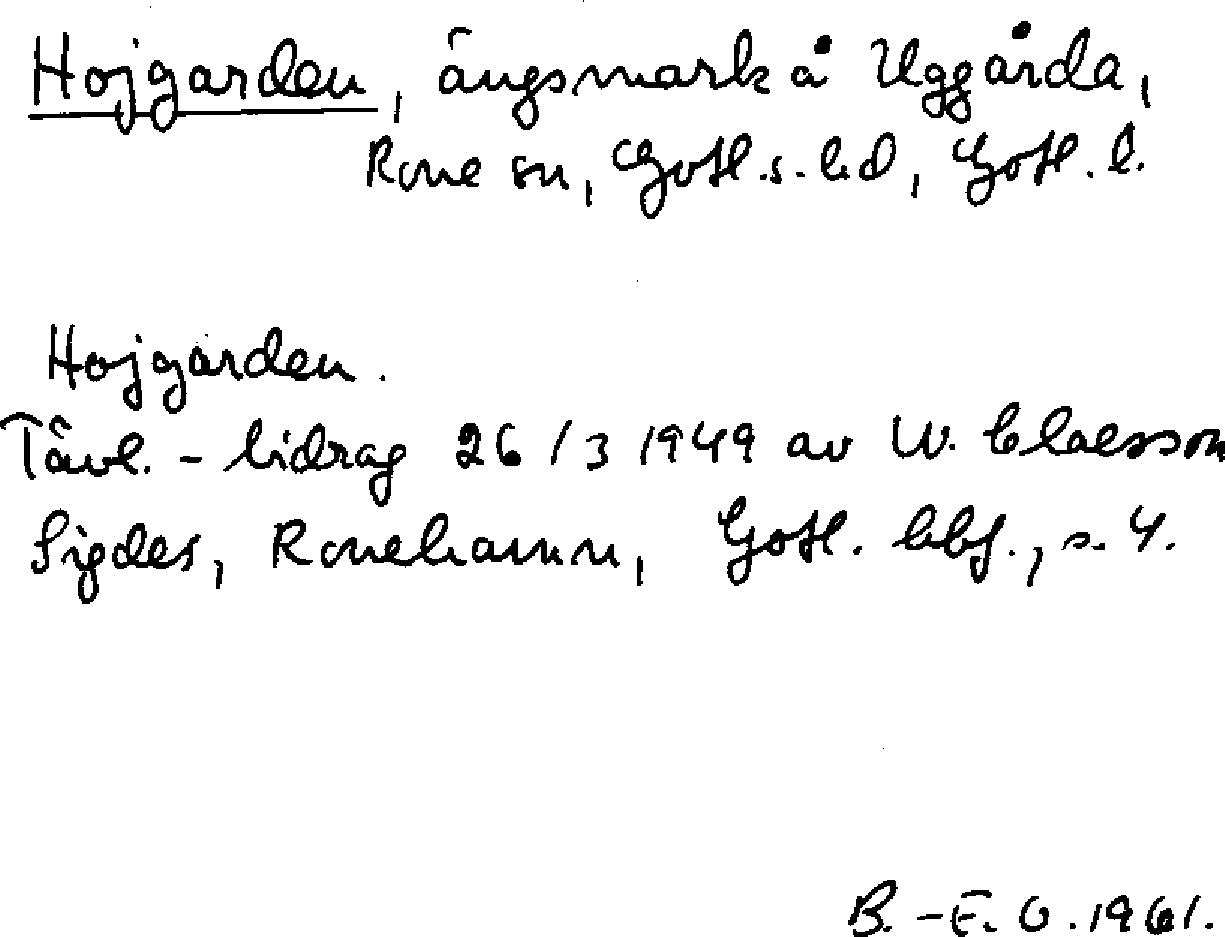 Hojgarden, ängsmark å Uggårda,
Rone sn, Gotl.s. hd, Gotl. l.
Hojgården.
Tävl. - bidrag 26/3 1949 av W. Claesson
Sigdes, Ronehamn, Gotl. bbf., s. 4.
B. -E. O. 1961.